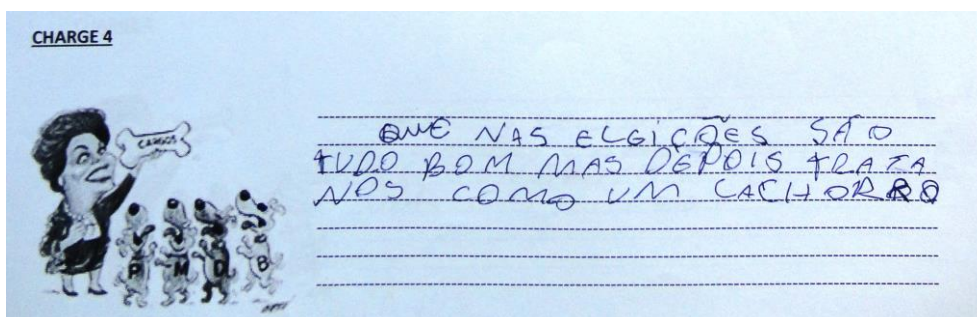 CHARGE 4
CARGOS
P M D B
QUE NAS ELGIÇÕES SÃO
TUDO BOM MAS DEPOIS TRATA
NOS COMO UM CACHORRO